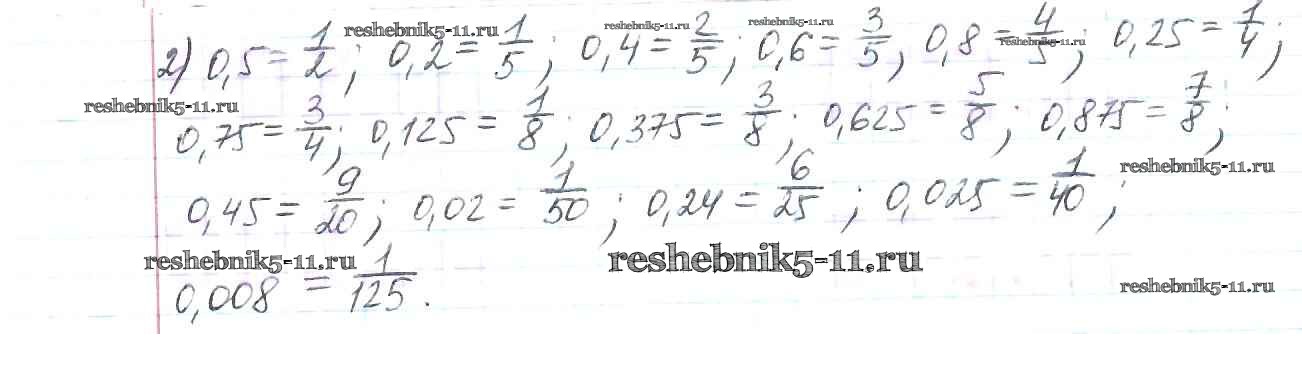 reshebnik5-11.ru reshebnik5-11.ru reshebnik5-11.ru
2) 0,5 = 1/2; 0,2 = 1/5; 0,4 = 2/5; 0,6 = 3/5, 0,8 = 4/5; 0,25 = 1/4;
reshebnik5-11.ru
reshebnik5-11.ru
0,75 = 3/4; 0,125 = 1/8; 0,375 = 3/8; 0,625 = 5/8; 0,875 = 7/8;
reshebnik5-11.ru
0,45 = 9/20; 0,02 = 1/50; 0,24 = 6/25; 0,025 = 1/40;
reshebnik5-11.ru reshebnik5-11.ru
0,008 = 1/125.
reshebnik5-11.ru